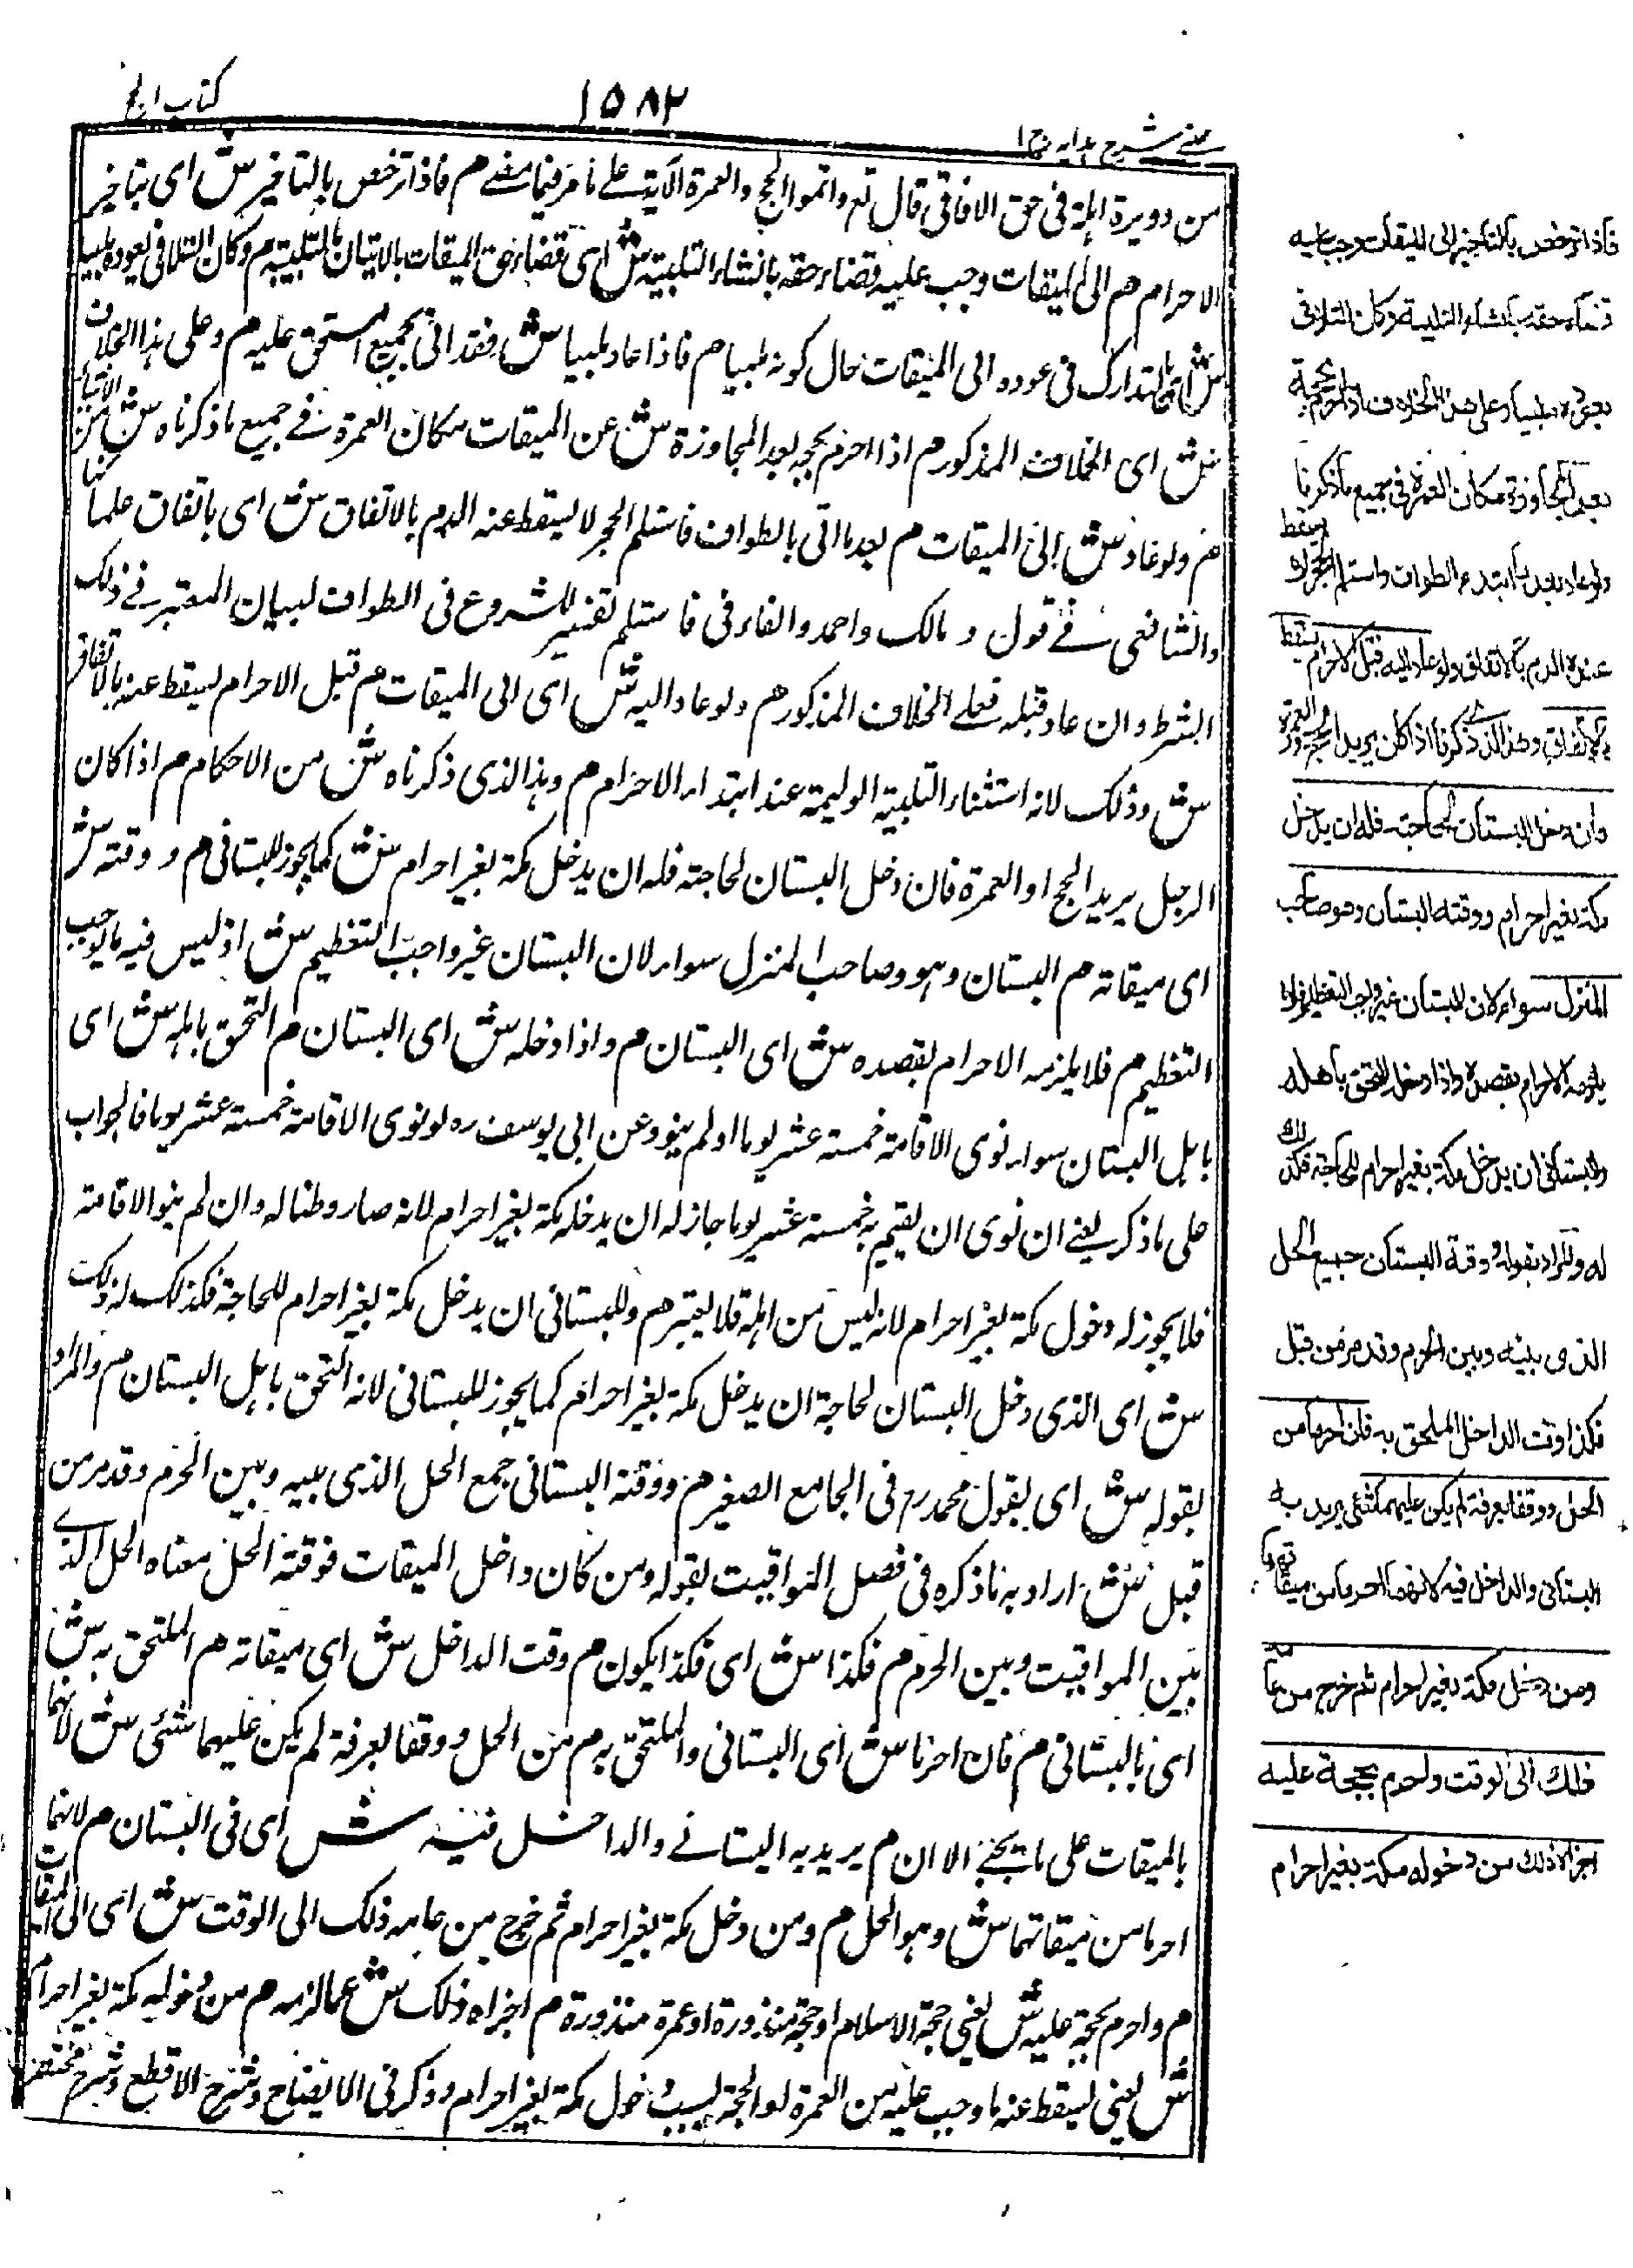 كتاب الحج
١٥٨٢
عيني شرح هدايه ج ١
من دويرة اهله فى حق الافاقى قال تع واتموا الحج والعمرة الآية على ما مر فيما مضے م فاذا ترخص بالتاخير ش اى بتاخير
الاحرام م الى الميقات وجب عليه قضاء حقه بانشاء التلبية ش اى قضاء حق الميقات بالاتيان بالتلبية م وكان التلافى بعوده ملبيا
ش اى التدارك فى عوده الى الميقات حال كونه ملبيا م فاذا عاد ملبيا ش فقد اتى بجميع المستحق عليه م وعلى هذا الخلاف
ش اى الخلاف المذكور م اذا احرم بحجة بعد المجاوزة ش عن الميقات مكان العمرة فے جميع ما ذكرناه ش من
م ولو عاد ش الى الميقات م بعد ما اتى بالطواف فاستلم الحجر لا يسقط عنه الدم بالاتفاق ش اى باتفاق علمائنا
والشافعى فے قول و مالك واحمد والفاء فى فاستلم تفسير للشروع فى الطواف لبيان المعتبر فے ذلك
الشرط وان عاد قبله فعلے الخلاف المذكور م ولو عاد اليه ش اى الى الميقات م قبل الاحرام يسقط عنه بالاتفاق
ش وذلك لانه استثناء التلبية عند ابتداء الاحرام م وهذا الذى ذكرناه ش من الاحكام م اذا كان
الرجل يريد الحج او العمرة فان دخل البستان لحاجته فله ان يدخل مكة بغير احرام ش كما يجوز للبستانى م و وقته ش
اى ميقاته م البستان وهو وصاحب المنزل سواء لان البستان غير واجب التعظيم ش اذ ليس فيه ما يوجب
التعظيم م فلا يلزمه الاحرام بقصده ش اى البستان م واذا دخله ش اى البستان م التحق باهله ش اى
باهل البستان سواء نوى الاقامة خمسة عشر يوما او لم ينو وعن ابى يوسف ره لو نوى الاقامة خمسة عشر يوما فالجواب
على ما ذكر يعنے ان نوى ان يقيم به خمسة عشر يوما جاز له ان يدخله مكة بغير احرام لانه صار وطنا له وان لم ينو الاقامة
فلا يجوز له دخول مكة بغير احرام لانه ليس من اهله فلا يعتبر م وللبستانى ان يدخل مكة بغير احرام للحاجة فكذلك له ذلك
ش اى الذى دخل البستان لحاجة ان يدخل مكة بغير احرام كما يجوز للبستانى لانه التحق باهل البستان م والمراد
بقوله ش اى بقول محمد رح فى الجامع الصغير م ووقته البستانى جمع الحل الذى بينه وبين الحرم وقد مر من
قبل ش اراد به ما ذكره فى فصل المواقيت بقوله ومن كان داخل الميقات فوقته الحل معناه الحل الذے
بين المواقيت وبين الحرم م فكذا ش اى فكذا يكون م وقت الداخل ش اى ميقاته م الملتحق به ش
اى بالبستانى م فان احرما ش اى البستانى والملتحق به م من الحل ووقفا بعرفة لم يكن عليهما شئى ش لانهما
بالميقات على ما يجئے الا ان م يريد به البستانے والداخل فيه ش اى فى البستان م لانهما
احرما من ميقاتهما ش وهو الحل م ومن دخل مكة بغير احرام ثم خرج من عامه ذلك الى الوقت ش اى الى الميقات
م واحرم بحجة عليه ش يعنى حجة الاسلام او حجة منذورة او عمرة منذورة م اجزاه ذلك ش عما لزمه م من دخوله مكة بغير احرام
ش يعنى يسقط عنه ما وجب عليه من العمرة او الحجة بسبب دخول مكة بغير احرام وذكر فى الايضاح وشرح الاقطع وشرح مختصر
فاذا ترخص بالتاخير الى الميقات وجب عليه
قضاء حقه بانشاء التلبية وكان التلافى
بعوده ملبيا وعلى هذا الخلاف اذا احرم بحجة
بعد المجاوزة مكان العمرة فى جميع ما ذكرنا
ولو عاد بعد ما ابتدء الطواف واستلم الحجر لا يسقط
عنه الدم بالاتفاق ولو عاد اليه قبل الاحرام يسقط
بالاتفاق وهذا الذے ذكرنا اذا كان يريد الحج والعمرة
وان دخل البستان لحاجته فله ان يدخل
مكة بغير احرام ووقته البستان وهو وصاحب
المنزل سواء لان البستان غير واجب التعظيم فلا
يلزمه الاحرام بقصده واذا دخله التحق باهله
وللبستانى ان يدخل مكة بغير احرام للحاجة فكذلك
له والمراد بقوله ووقته البستان جميع الحل
الذى بينه وبين الحرم وقد مر من قبل
فكذا وقت الداخل الملحق به فان احرما من
الحل ووقفا بعرفة لم يكن عليهما شئى يريد به
البستانى والداخل فيه لانهما احرما من ميقاتهما
ومن دخل مكة بغير احرام ثم خرج من عامه
ذلك الى الوقت واحرم بحجة عليه
اجزاه ذلك من دخوله مكة بغير احرام